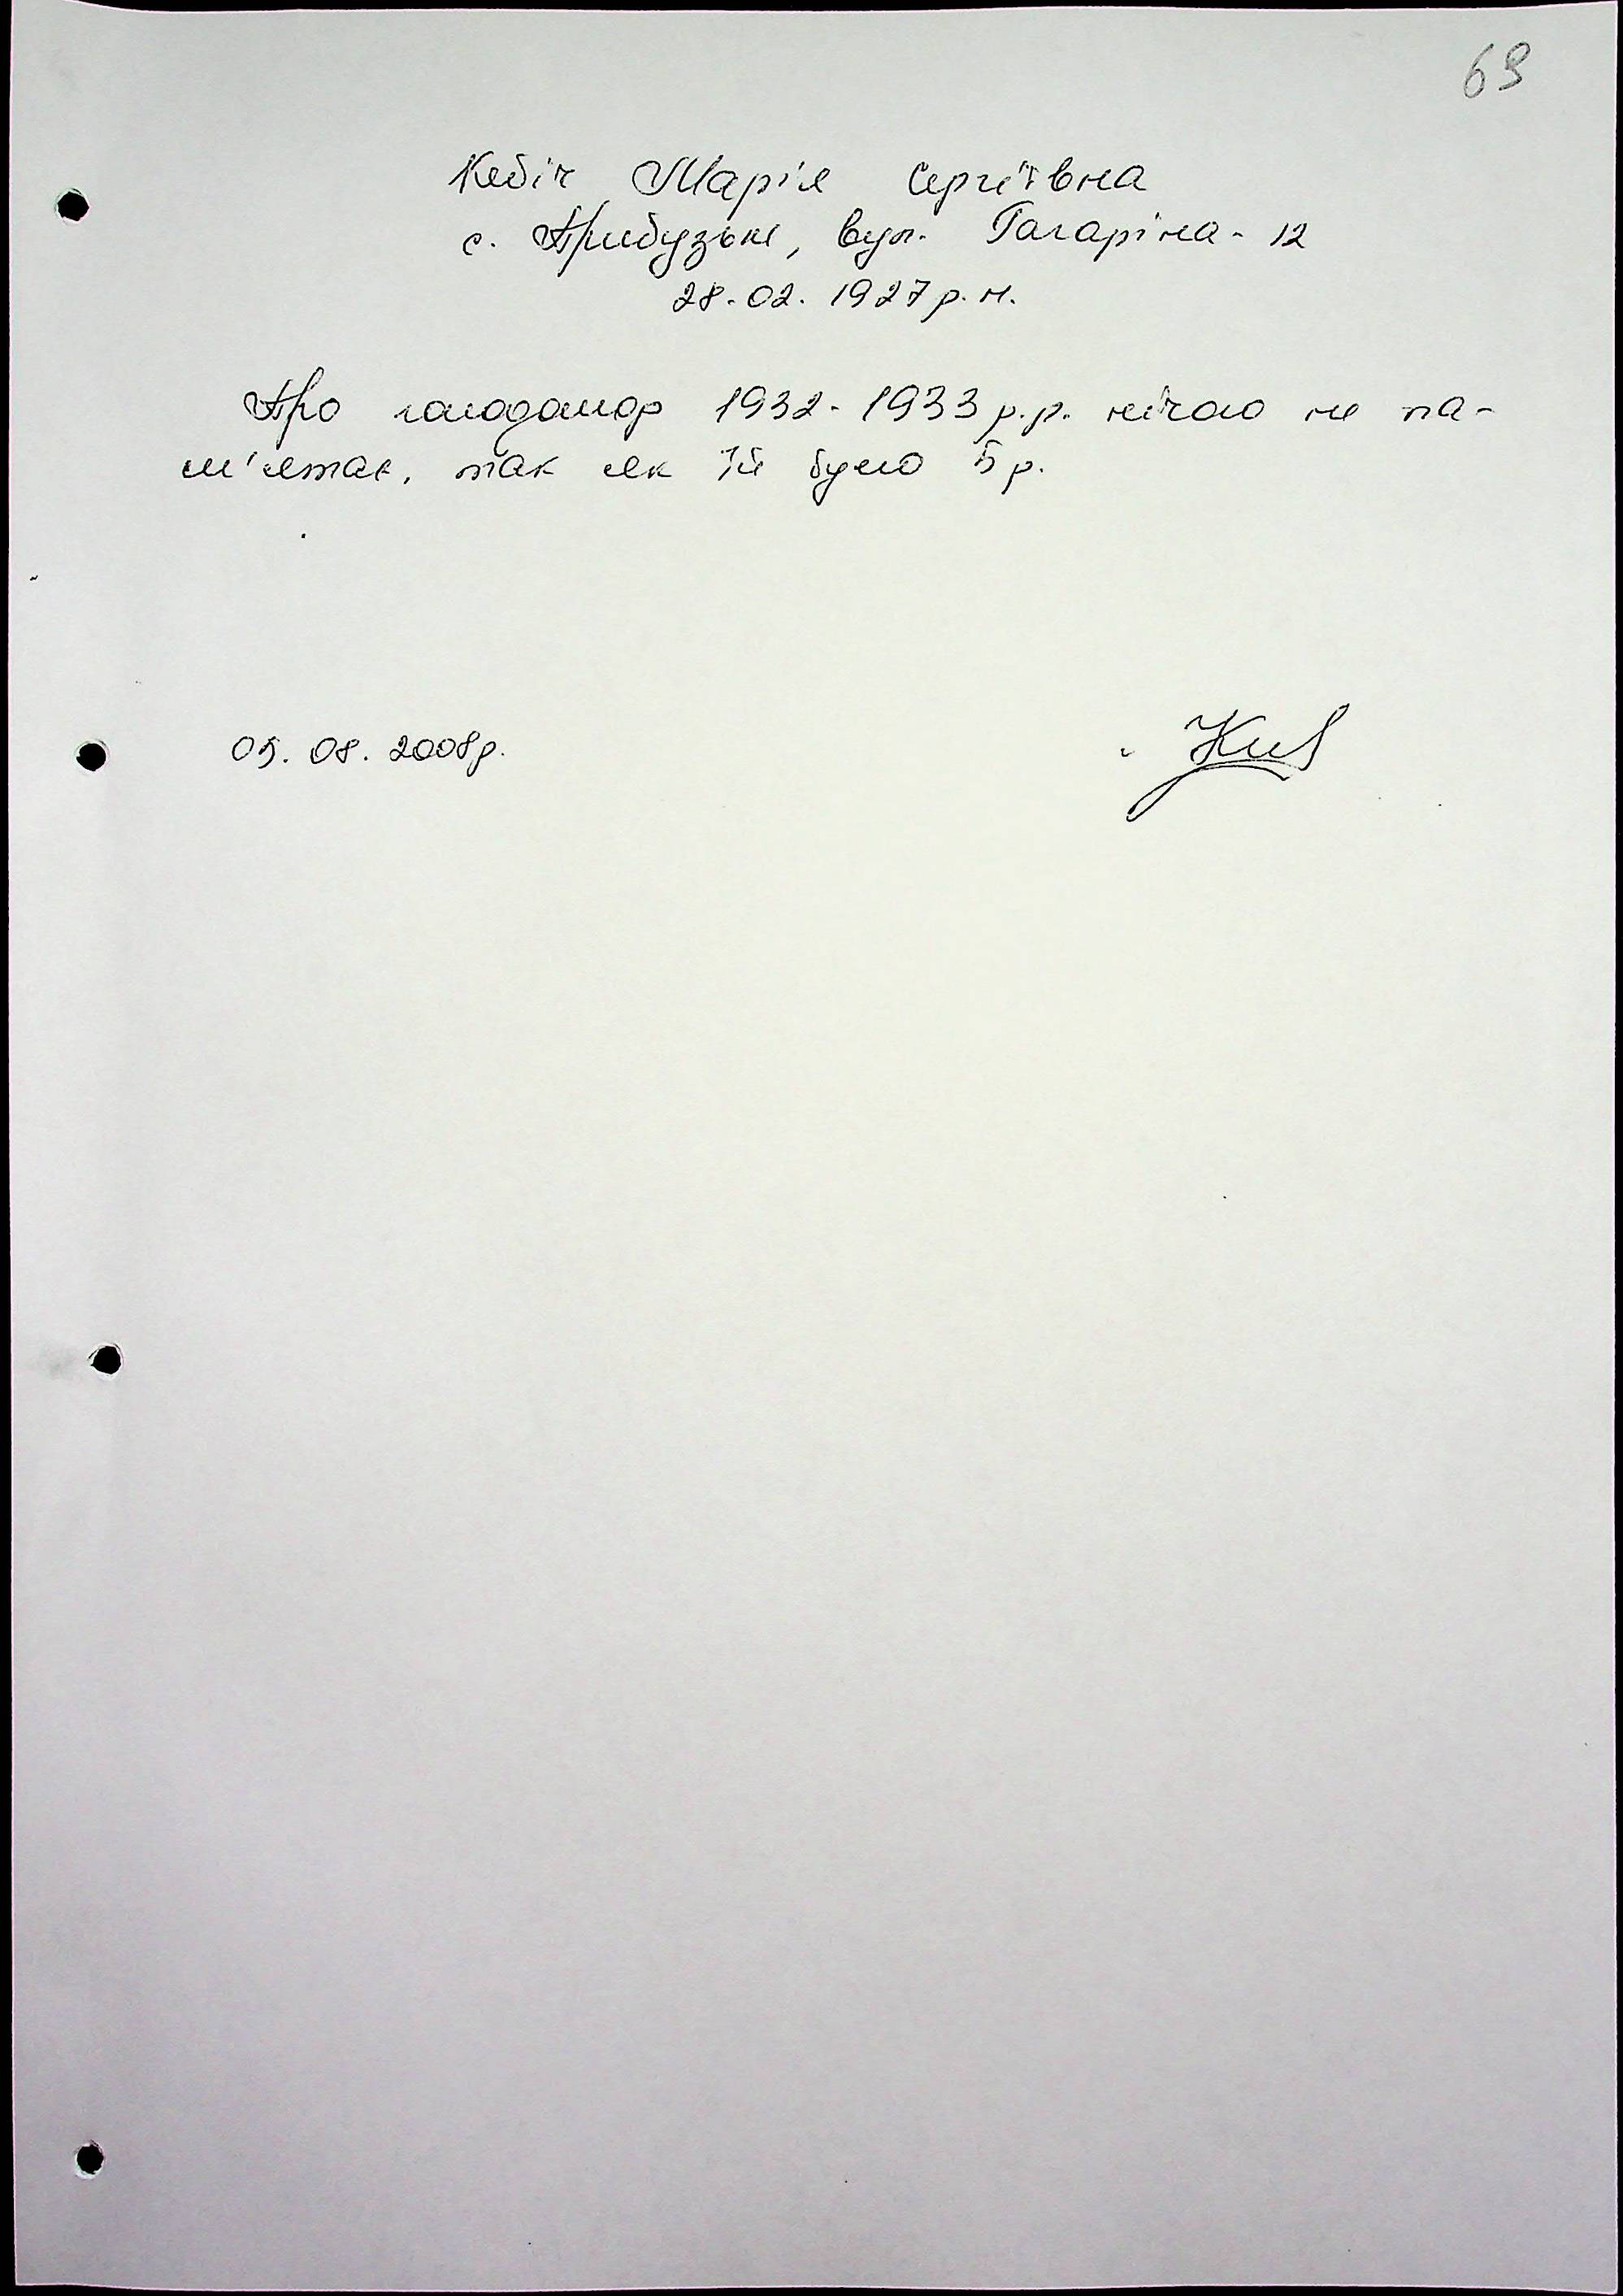 69
Кебіч Марія Сергіївна
с. Прибузьке, вул. Гагаріна - 12
28.02.1927 р.н.
Про голодомор 1932-1933 р.р. нічого не па-
м'ятає, так як їй було 5 р.
05.08.2008р.